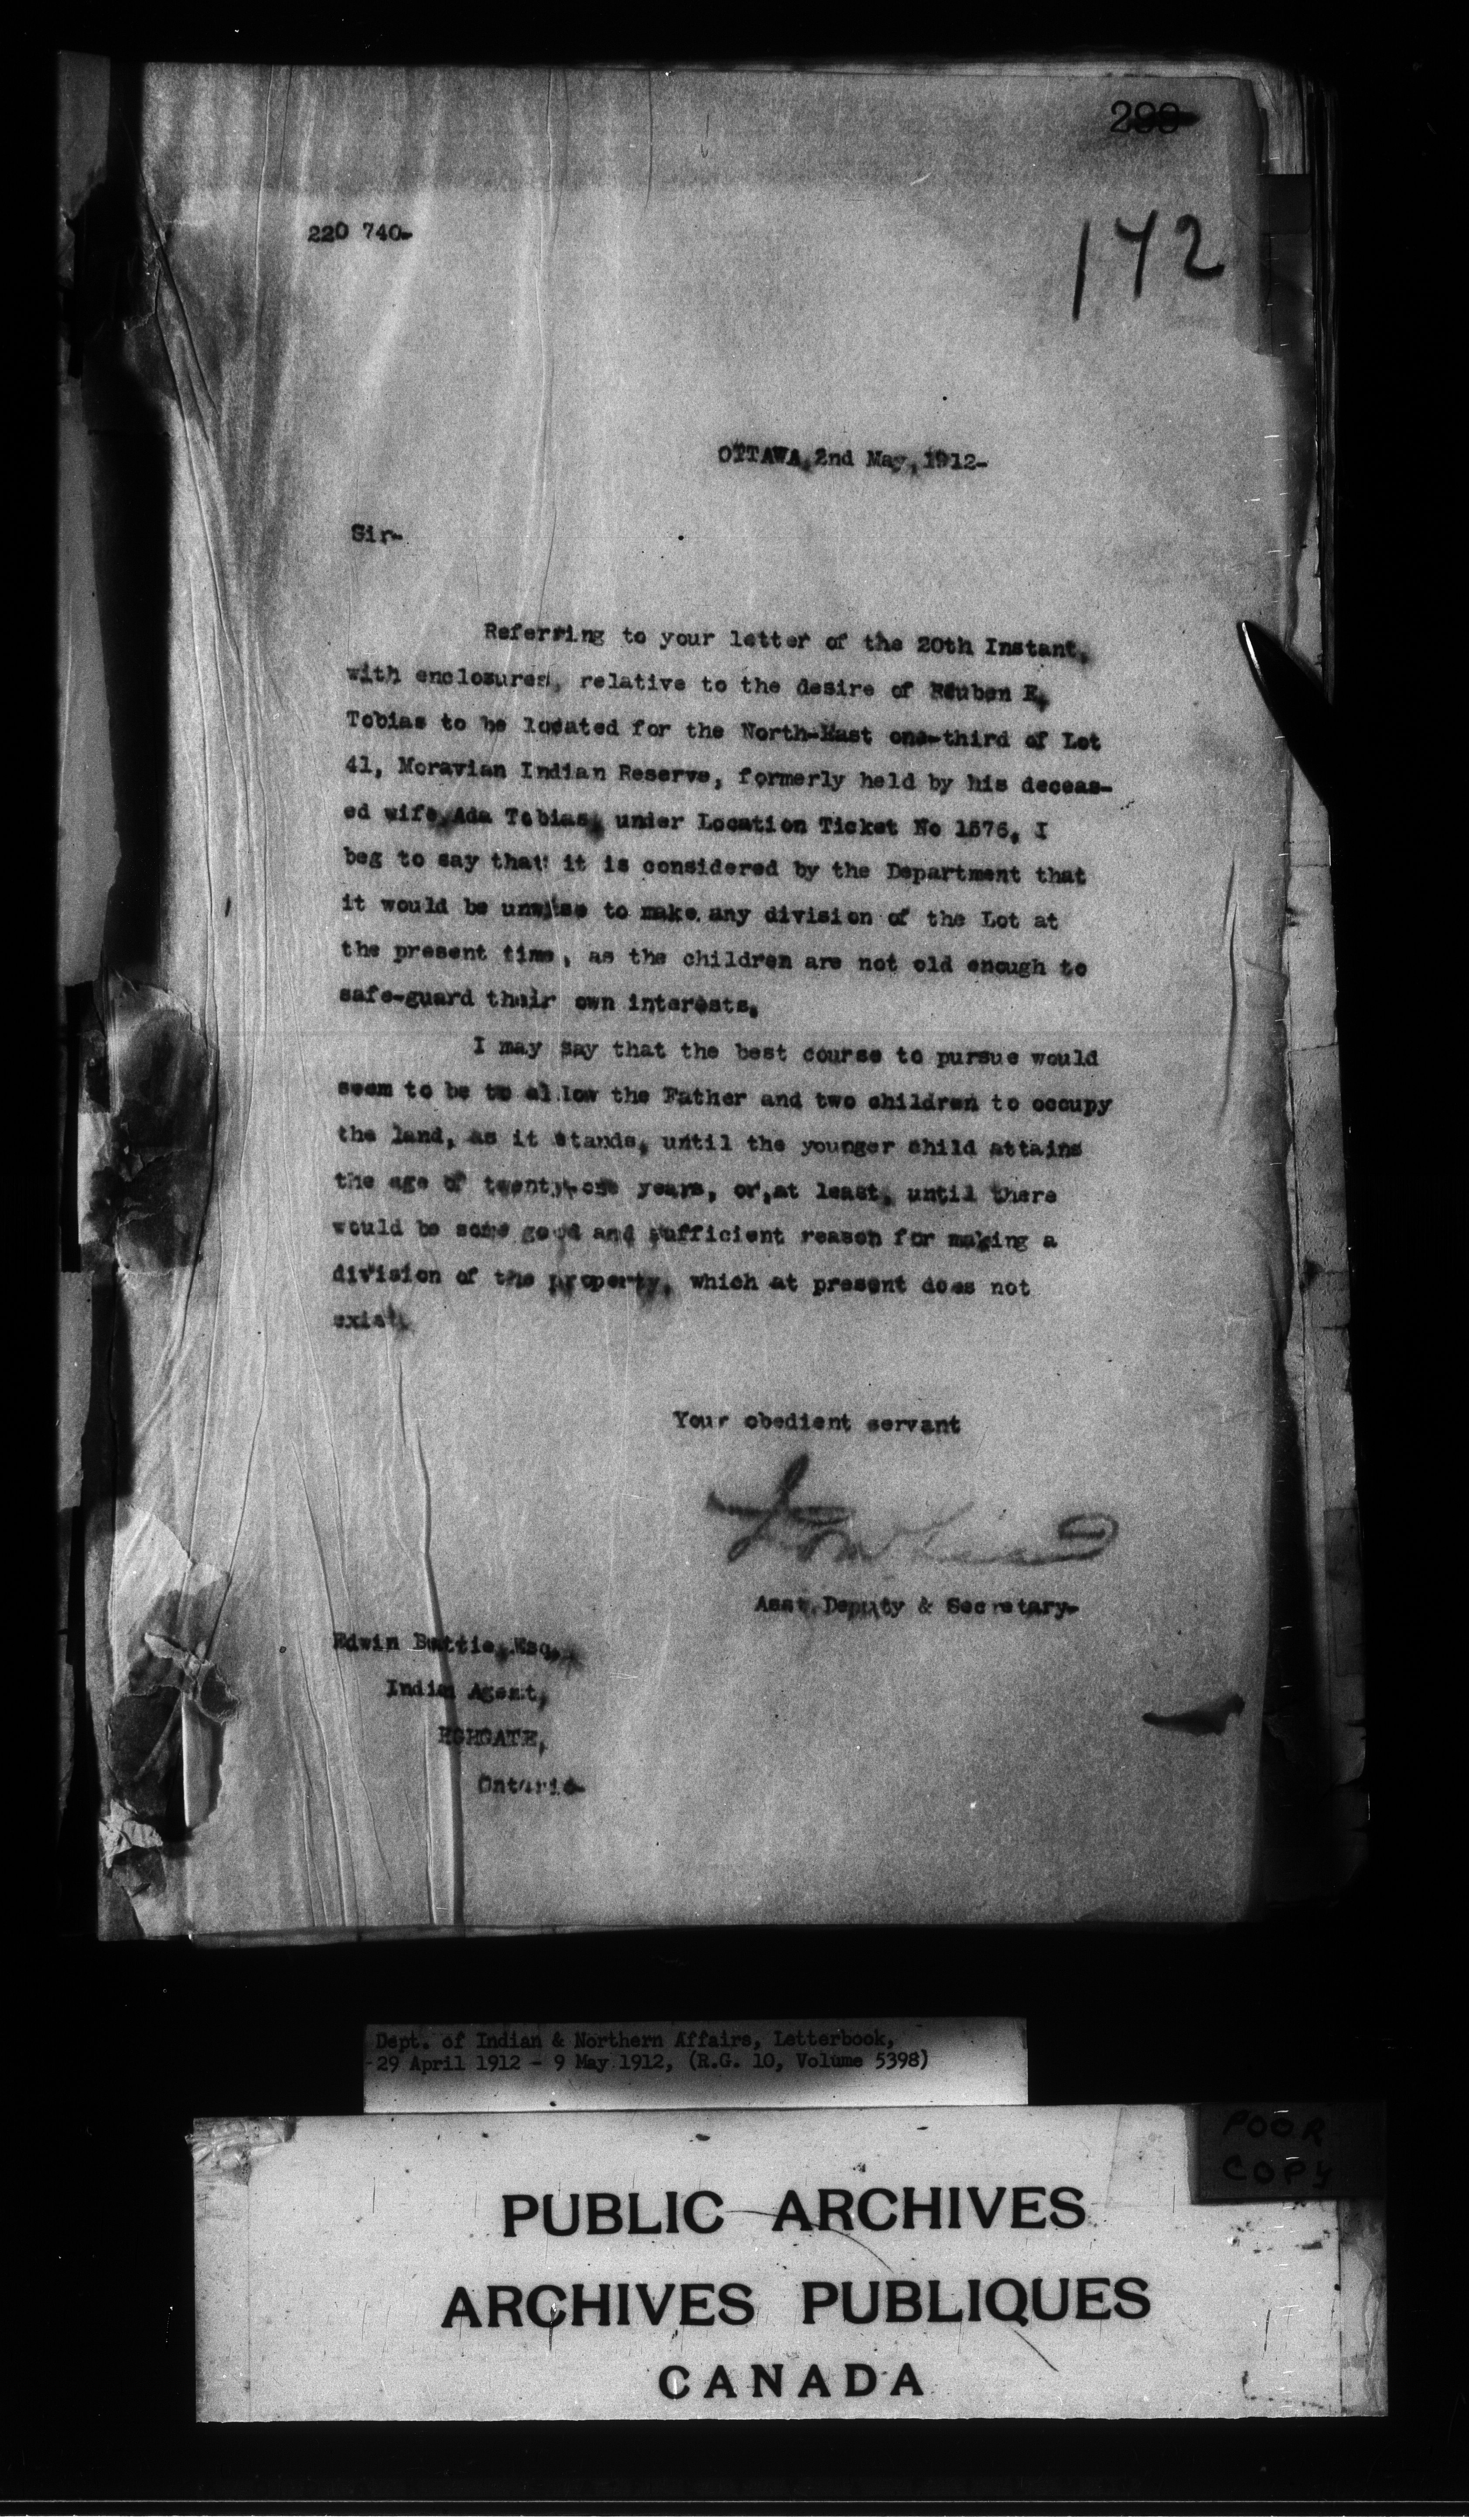 220 740-
172
OTTAWA, 2nd May, 1912-
Sir-
Referring to your letter of the 20th Instant,
with enclosures, relative to the desire of Reuben E.
Tobias to be located for the North-East one-third of Lot
41, Moravian Indian Reserve, formerly held by his deceas-
ed wife, Ada Tobias, under Location Ticket No 1576, I
beg to say that it is considered by the Department that
it would be unwise to make any division of the Lot at
the present time, as the children are not old enough to
safe-guard their own interests.
I may say that the best course to pursue would
seem to be to allow the Father and two children to occupy
the land, as it stands, until the younger child attains
the age of twenty-one years, or, at least, until there
would be some good and sufficient reason for making a
division of the property, which at present does not
exist.
Your obedient servant
Asst. Deputy & Secretary-
Edwin Beattie, Esq.,
Indian Agent,
HGHGATE,
Ontario-
Dept. of Indian & Northern Affairs, Letterbook,
29 April 1912 - 9 May 1912, (R.G. 10, Volume 5398)
POOR
COPY
PUBLIC ARCHIVES
ARCHIVES PUBLIQUES
CANADA